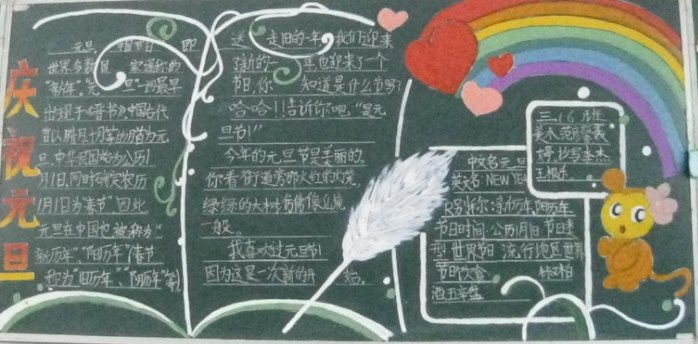 庆祝元旦
元旦 即
世界多数
"新年"。元 旦"一词最早
出现于《晋书》。中国古代
曾以腊月、十月等的月首为元
旦。中华民国为公历1
月1日,同时确定农历
1月1日为春节。因此
元旦在中国也被称为"
新历年""阳历年"。春节
称为"旧历年""阴历年"
送 走旧的一年,我们迎来
了新的一 年也迎来了一个
节日,你 知道是什么节吗?
哈哈!!告诉你吧,"是元
旦节!"
今年的元旦节是美丽的,
你看街道旁那火红的灯笼,
绿绿的大树仿佛像
一般。
我喜欢过元旦节!
因为这是一次新的开 始。
三.16班
美术:范
抄写:李杰
中文名:元旦
英文名:NEW YEA
别称:新历年、阳历年
节日时间:公历1月1日 节日类
型:世界节日 流行地区:世界
节日饮食:
酒、五辛盘